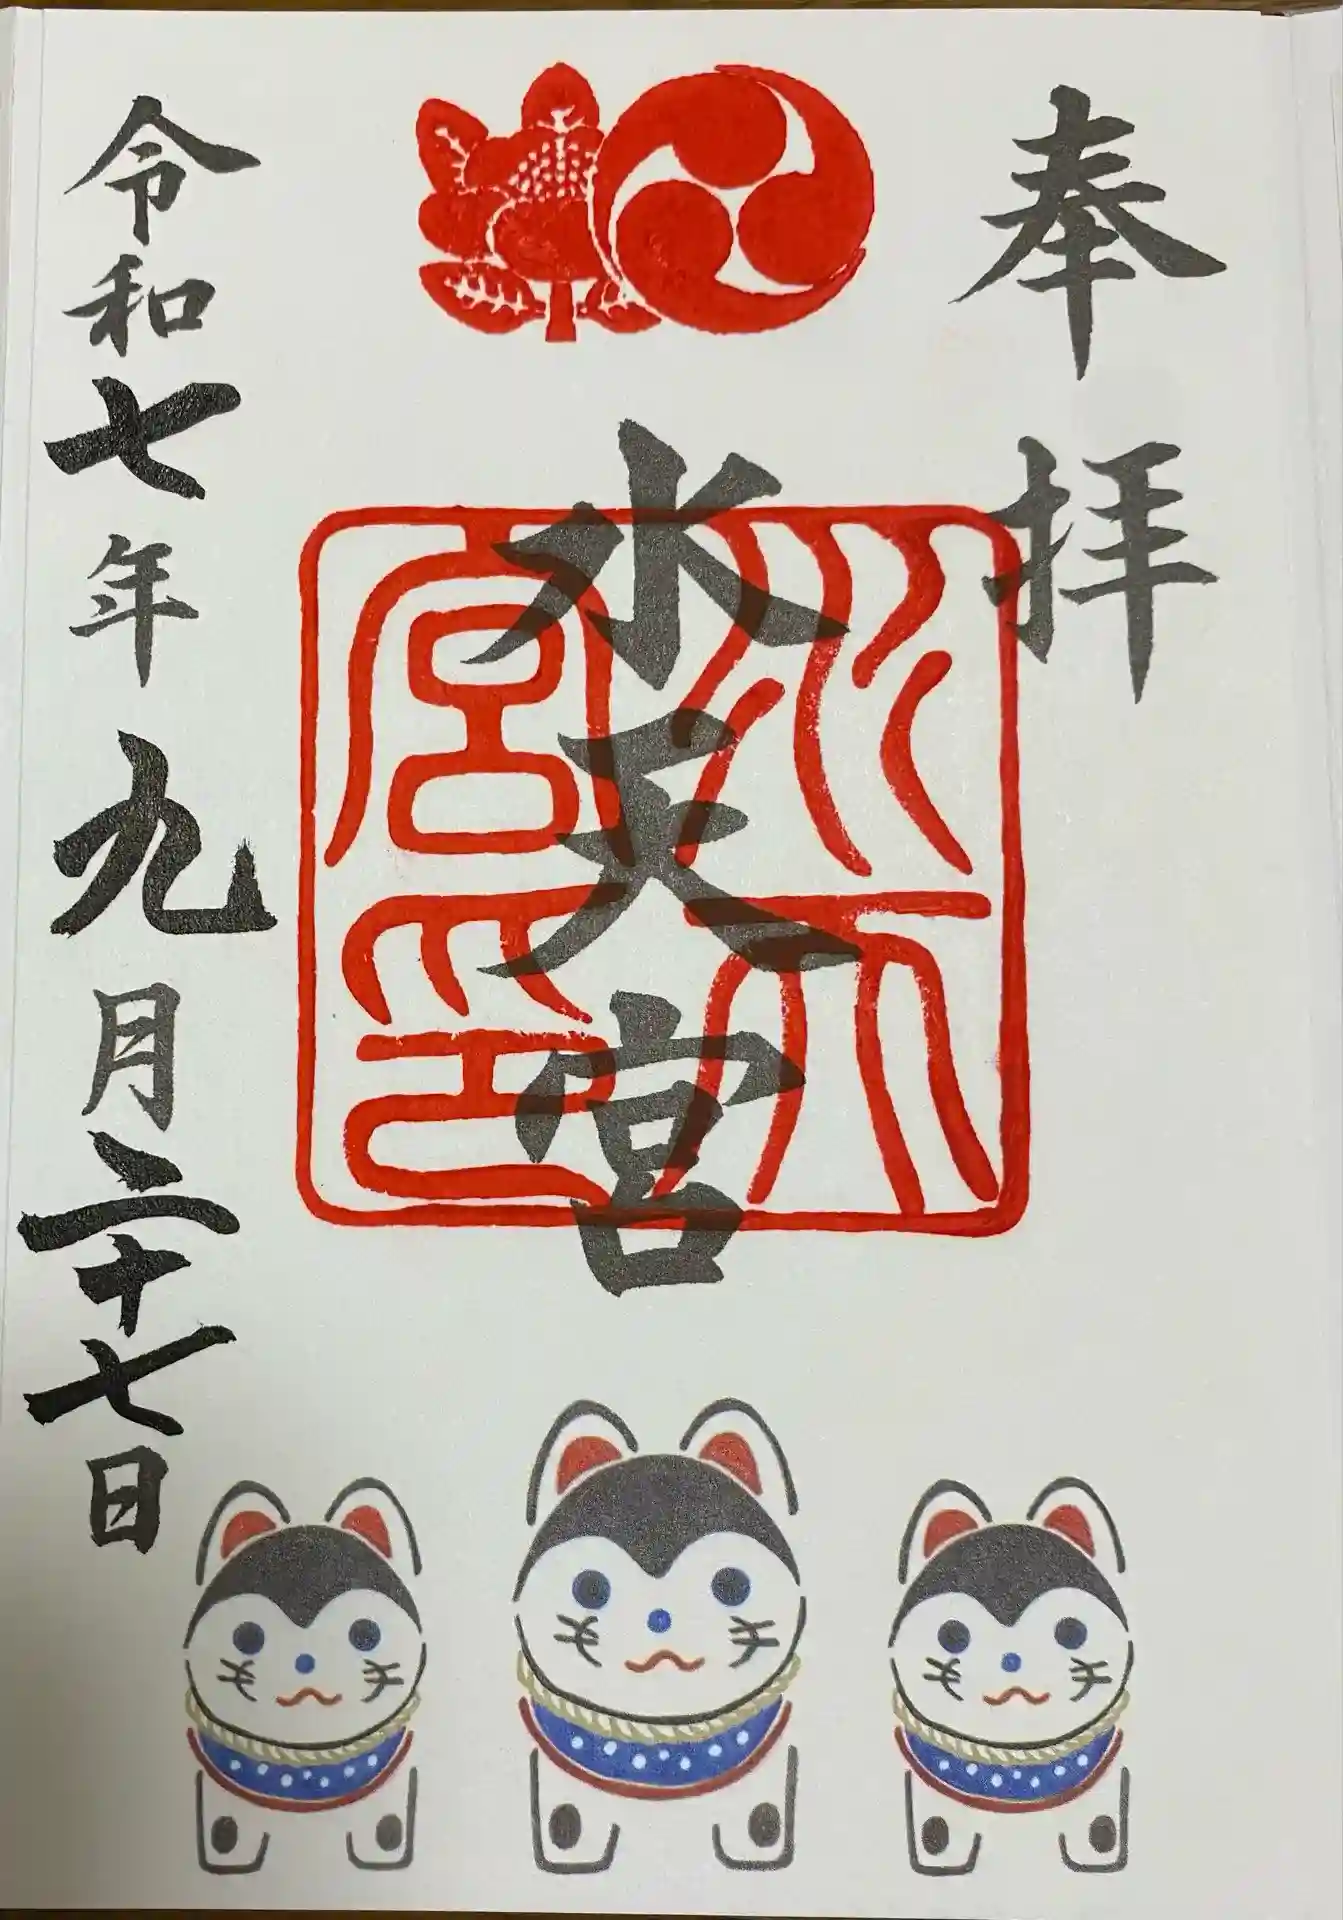 奉拝
水天宮
水天宮印
令和七年九月二十七日